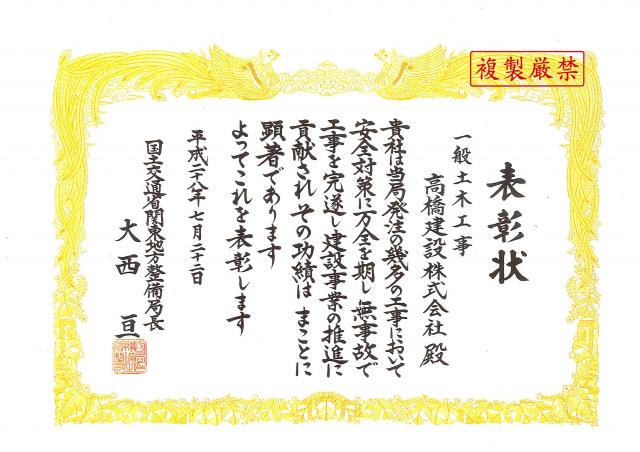 複製厳禁
表彰状
一般土木工事
高橋建設株式会社 殿
貴社は当局発注の幾多の工事において
安全対策に万全を期し無事故で
工事を完遂し建設事業の推進に
貢献されその功績は まことに
顕著であります
よってこれを表彰します
平成二十八年七月二十二日
国土交通省関東地方整備局長
大西 亘